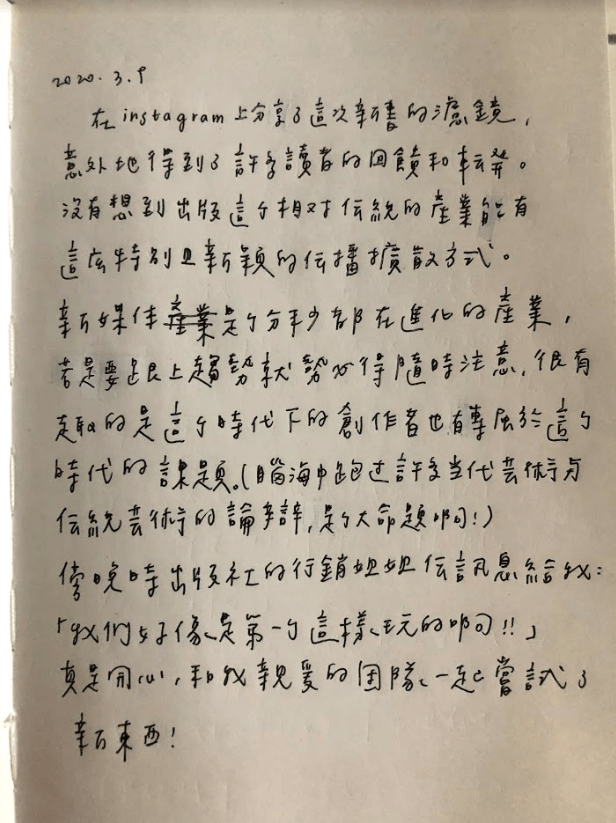 2020.3.9
在instagram上分享了這次新書的濾鏡,
意外地得到了許多讀者的回饋和転発。
沒有想到出版這个相対伝統的產業能有
這広特別且新穎的伝播擴散方式。
新媒体產業是个分秒都在進化的產業,
若是要跟上趨勢就勢必得隨時注意,很有
趣的是這个時代下的創作者也有專屬於這个
時代的課題。(腦海中跑过許多当代芸術与
伝統芸術的論辯,是个大命題啊!)
傍晚時出版社的行銷姐姐伝訊息給我:
「我們好像是第一个這樣玩的啊!!」
真是開心,和我親愛的团隊一起嘗試了
新東西!